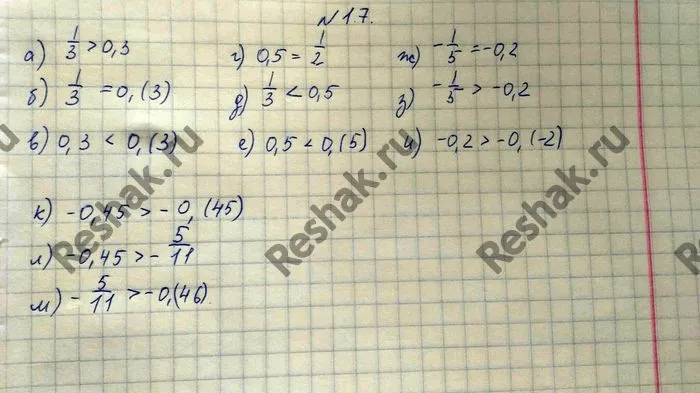 №1.7.
а) 1/3 > 0,3
г) 0,5 = 1/2
ж) -1/5 = -0,2
б) 1/3 = 0,(3)
д) 1/3 < 0,5
з) -1/5 > -0,2
в) 0,3 < 0,(3)
е) 0,5 < 0,(5)
и) -0,2 > -0,(-2)
к) -0,45 > -0,(45)
л) -0,45 > -5/11
м) -5/11 > -0,(46)
Reshak.ru
Reshak.ru
Reshak.ru
Reshak.ru